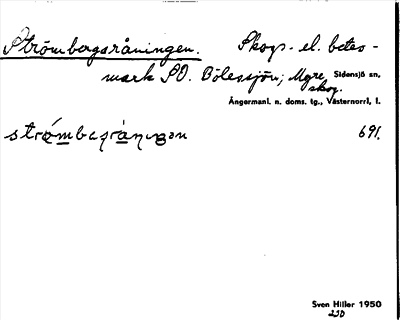 Strömbergsråningen. Skogs- el. betes-
mark SO. Bölessjön; Myre skog. Sidensjö sn,
Ångermanl. n. doms. tg., Västernorrl, l.
691.
Sven Hiller 1950